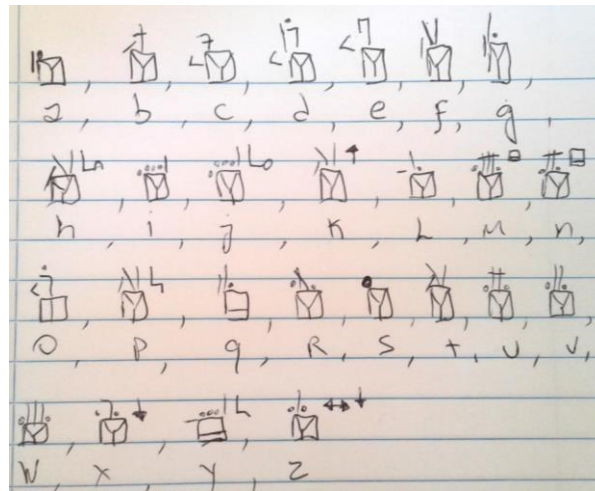 a, b, c, d, e, f, g,
h, i, j, K, L, M, n,
O, P, q, R, S, t, U, V,
W, X, y, Z